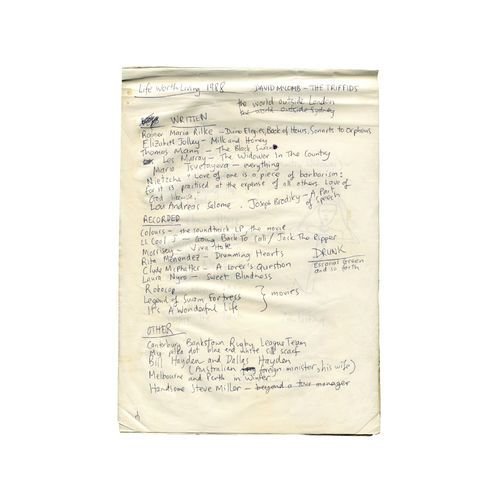 Life Worth Living 1988
DAVID McCOMB - THE TRIFFIDS
the world outside London
the world outside Sydney
WRITTEN
Rainer Maria Rilke - Duino Elegies, Book of Hours, Sonnets to Orpheus
Elizabeth Jolley - Milk and Honey
Thomas Mann - The Black Swan
Les Murray - The Widower In The Country
Maria Tsvetayeva - everything
Nietzche - Love of one is a piece of barbarism:
for it is practised at the expense of all others. Love of
God likewise.
Lou Andreas Salome. Joseph Brodsky - A Part
of Speech
RECORDED
Colours - the soundtrack LP, the movie
LL Cool J - Going Back To Cali / Jack The Ripper
Morrissey - Viva Hate
Rita Menendez - Drumming Hearts
Clyde McPhatter - A Lover's Question
Laura Nyro - Sweet Blindness
DRUNK
Escorial Green
and so forth
Robocop
Legend of Suram Fortress } movies
It's A Wonderful Life
OTHER
Canterbury Bankstown Rugby League Team
My polka dot blue and white silk scarf
Bill Hayden and Dallas Hayden
(Australian foreign minister, his wife)
Melbourne and Perth in Winter
Handsome Steve Miller - beyond a tour manager